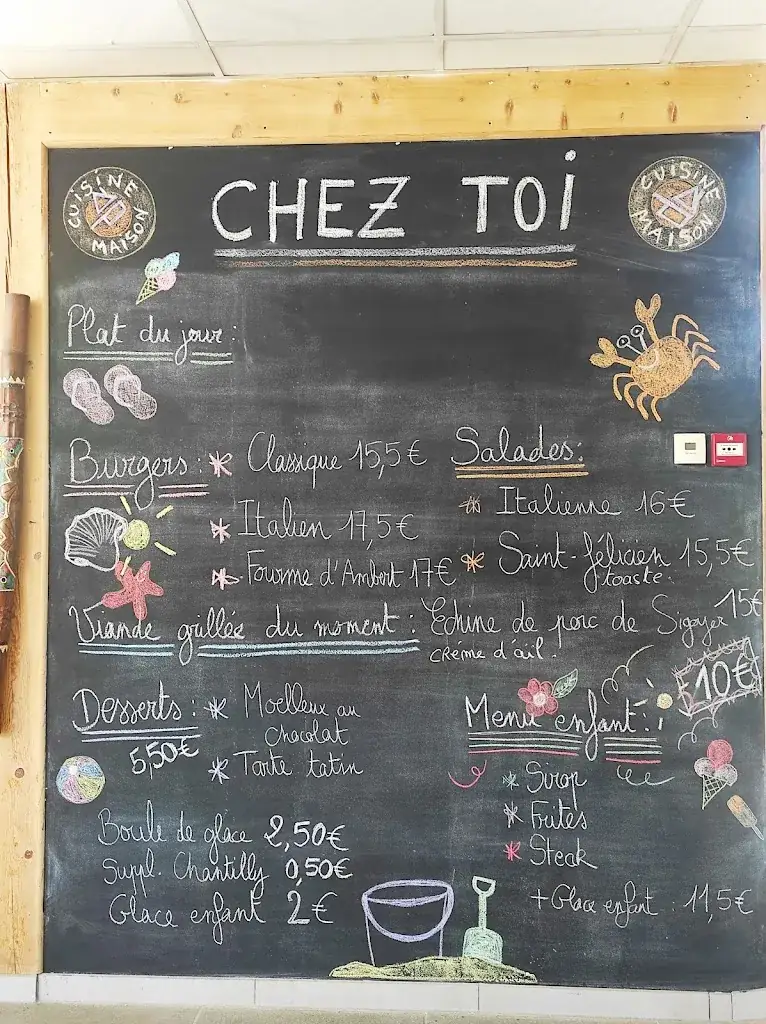 CUISINE MAISON
CHEZ TOI
CUISINE MAISON
Plat du jour :
Burgers : * Classique 15,5€
* Italien 17,5€
* Fourme d'Ambert 17€
Salades :
* Italienne 16€
* Saint-félicien 15,5€
toasté.
Viande grillée du moment : Echine de porc de Sigoyer 15€
crème d'ail.
Desserts : * Moelleux au
chocolat
5,50€
* Tarte tatin
Boule de glace 2,50€
Suppl. Chantilly 0,50€
Glace enfant 2€
Menu enfant : 10€
* Sirop
* Frites
* Steak
+ Glace enfant : 11,5€